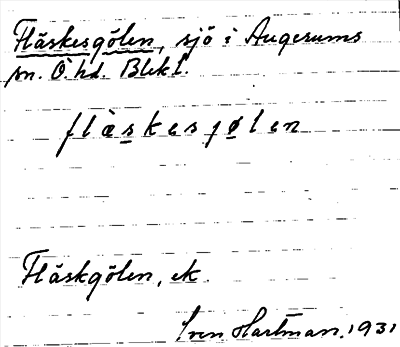 Fläskesgölen, sjö i Augerums
sn. Ö. hd. Blek l.
flàskesjølen
Fläskgölen, ek.
Sven Hartman. 1931